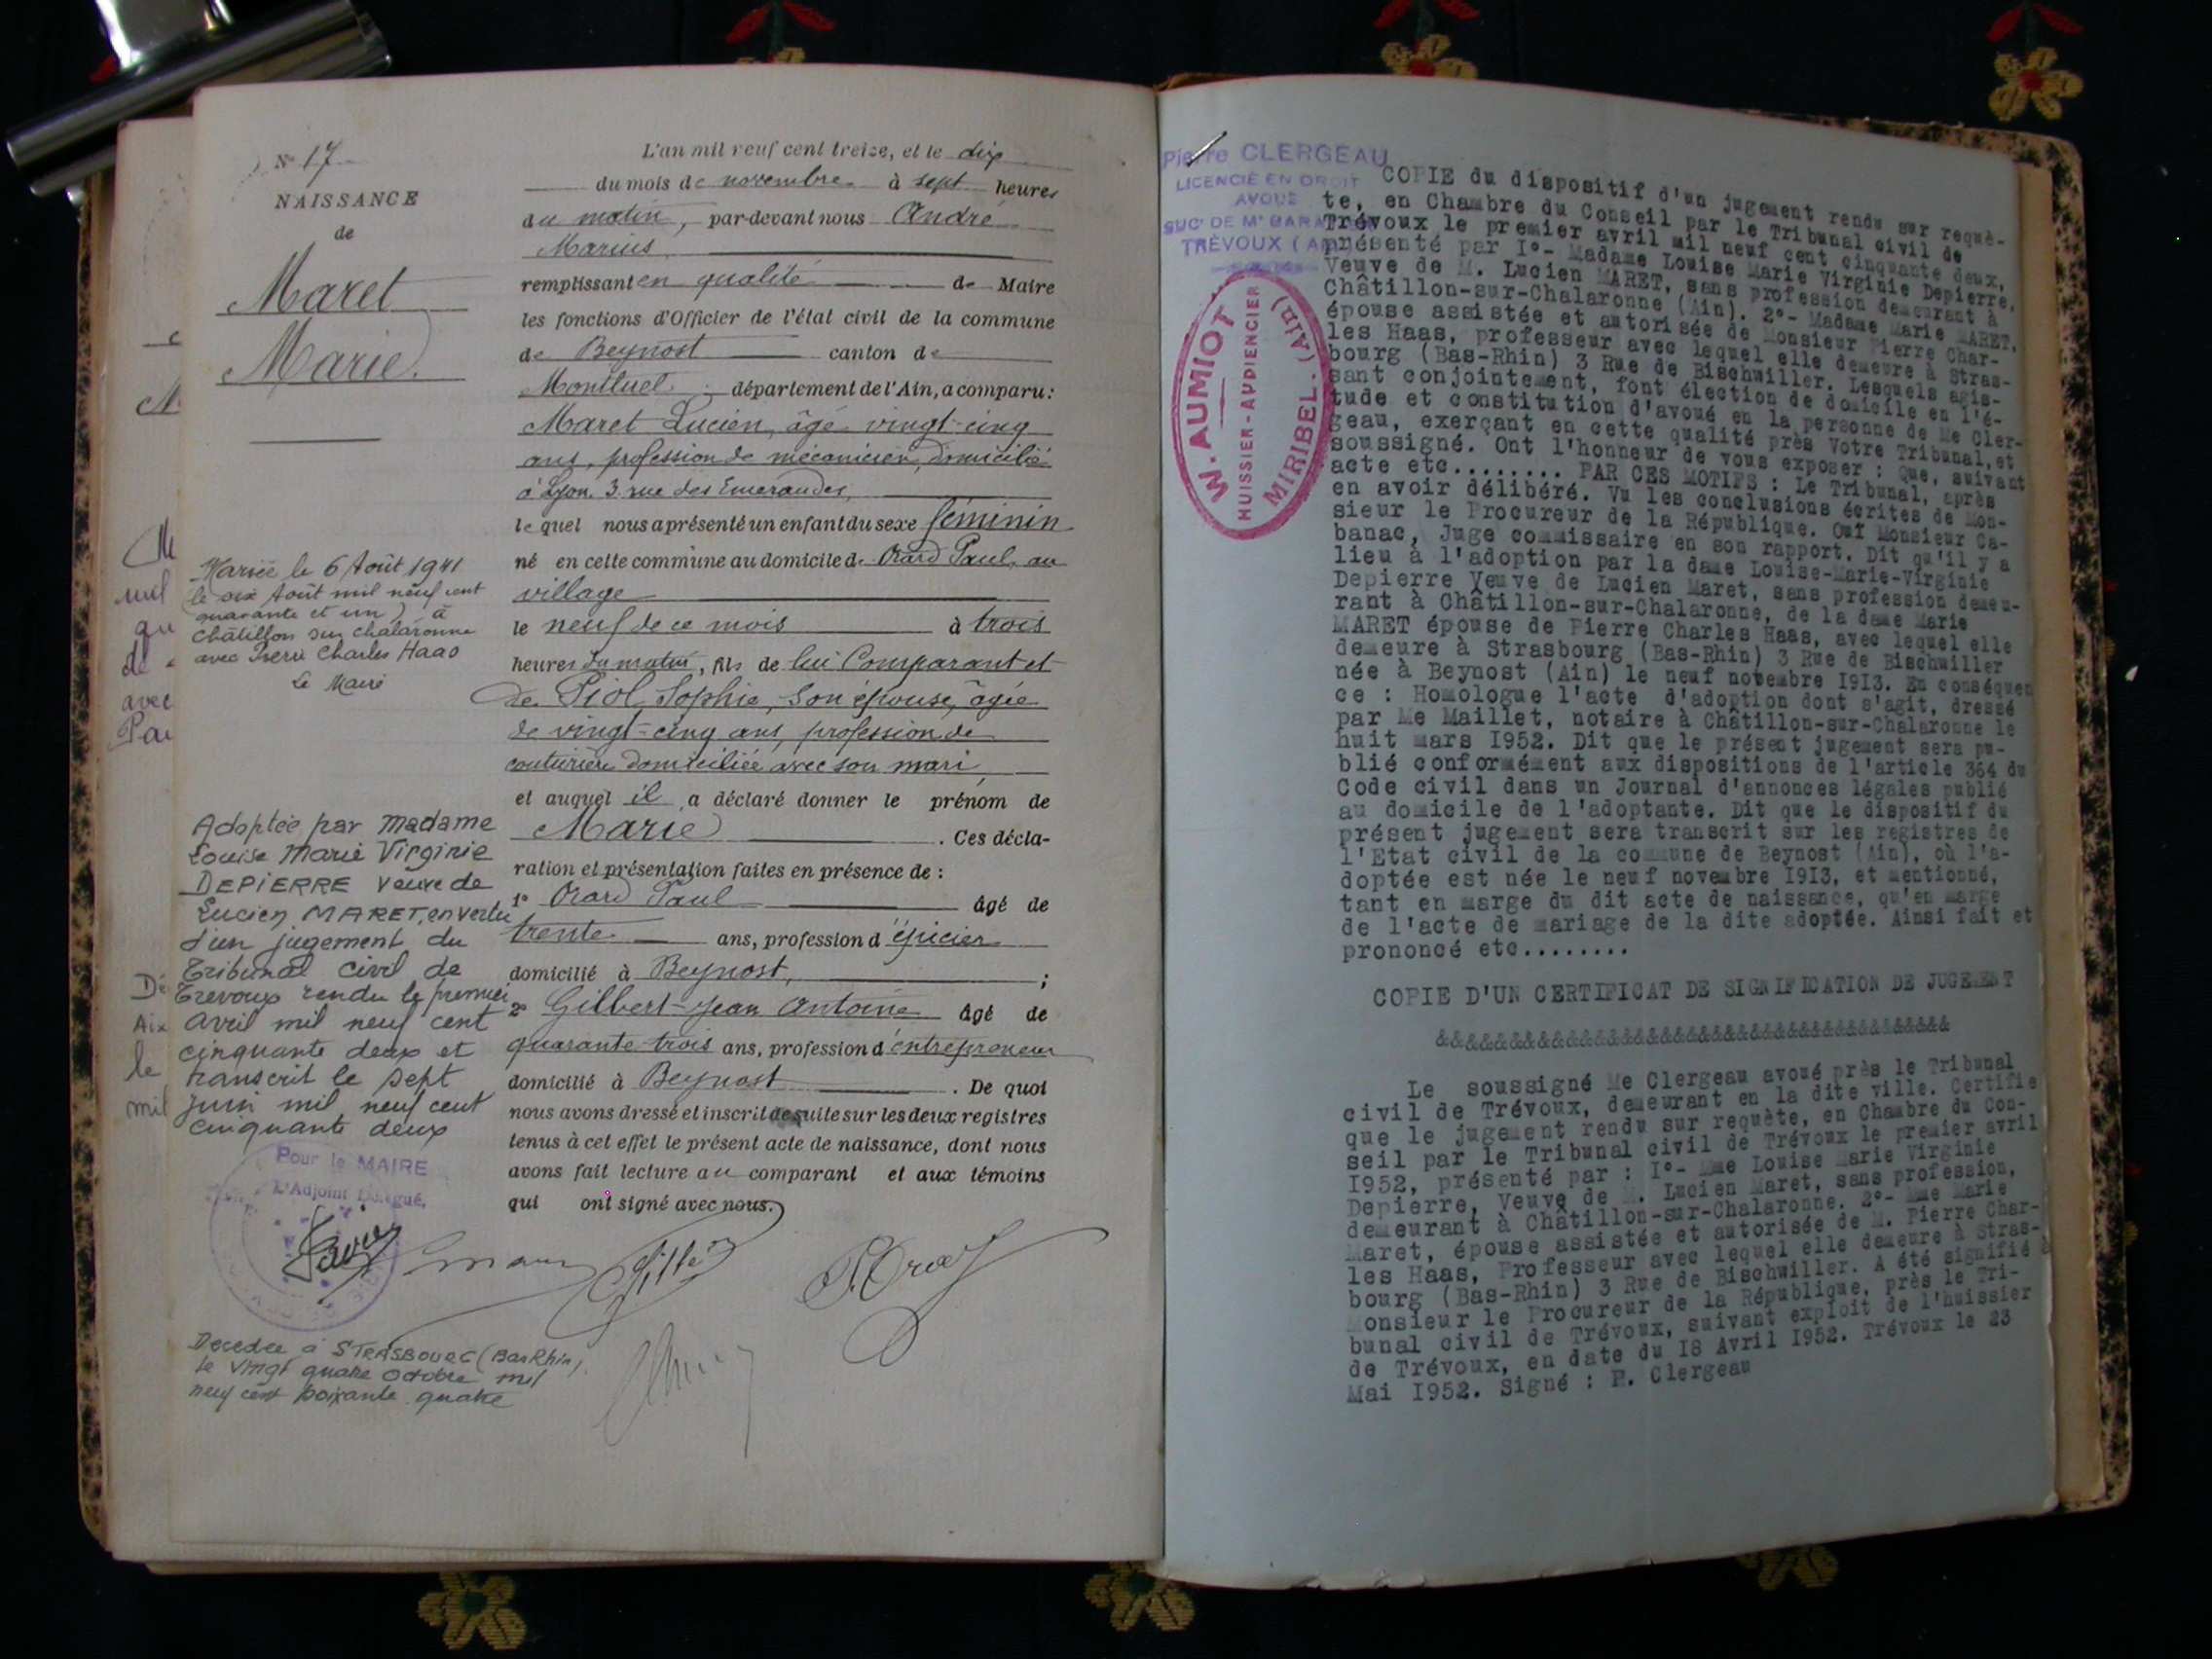 N° 17
NAISSANCE
de
Maret
Marie
Mariée le 6 Août 1941
(le six Août mil neuf cent
quarante et un) à
Châtillon sur Chalaronne
avec Pierre Charles Haas
Le Maire
Adoptée par Madame
Louise Marie Virginie
DEPIERRE veuve de
Lucien MARET, en vertu
d'un jugement du
Tribunal civil de
Trevoux rendu le premier
avril mil neuf cent
cinquante deux et
transcrit le sept
juin mil neuf cent
cinquante deux
Pour le MAIRE
L'Adjoint Délégué,
Décédée à STRASBOURG (Bas Rhin)
le vingt quatre octobre mil
neuf cent soixante quatre
L'an mil neuf cent treize, et le dix
du mois de novembre à sept heures
du matin, par-devant nous André
Marius
remplissant en qualité de Maire
les fonctions d'Officier de l'état civil de la commune
de Beynost canton de
Montluel département de l'Ain, a comparu:
Maret Lucien, âgé vingt-cinq
ans, profession de mécanicien, domicilié
à Lyon, 3 rue des Emeraudes,
lequel nous a présenté un enfant du sexe féminin
né en cette commune au domicile de Orard Paul, au
village
le neuf de ce mois à trois
heures du matin, fils de lui Comparant et
de Piol Sophie, son épouse, âgée
de vingt-cinq ans, profession de
couturière domiciliée avec son mari,
et auquel il a déclaré donner le prénom de
Marie. Ces décla-
ration et présentation faites en présence de :
1° Orard Paul âgé de
trente ans, profession d'épicier
domicilié à Beynost, ;
2° Gilbert Jean Antoine âgé de
quarante-trois ans, profession d'entrepreneur
domicilié à Beynost. De quoi
nous avons dressé et inscrit de suite sur les deux registres
tenus à cet effet le présent acte de naissance, dont nous
avons fait lecture au comparant et aux témoins
qui ont signé avec nous.
P. Orard
Pierre CLERGEAU
LICENCIÉ EN DROIT
AVOUÉ
TRÉVOUX
W. AUMIOT
HUISSIER-AUDIENCIER
MIRIBEL. (Ain)
COPIE du dispositif d'un jugement rendu sur requê-
te, en Chambre du Conseil par le Tribunal civil de
Trévoux le premier avril mil neuf cent cinquante deux,
présenté par I°- Madame Louise Marie Virginie Depierre,
Veuve de M. Lucien MARET, sans profession demeurant à
Châtillon-sur-Chalaronne (Ain). 2°- Madame Marie MARET,
épouse assistée et autorisée de Monsieur Pierre Char-
les Haas, professeur avec lequel elle demeure à Stras-
bourg (Bas-Rhin) 3 Rue de Bischwiller. Lesquels agis-
sant conjointement, font élection de domicile en l'é-
tude et constitution d'avoué en la personne de Me Cler-
geau, exerçant en cette qualité près Votre Tribunal, et
soussigné. Ont l'honneur de vous exposer : Que, suivant
acte etc........ PAR CES MOTIFS : Le Tribunal, après
en avoir délibéré. Vu les conclusions écrites de Mon-
sieur le Procureur de la République. Ouï Monsieur Ca-
banac, Juge commissaire en son rapport. Dit qu'il y a
lieu à l'adoption par la dame Louise-Marie-Virginie
Depierre Veuve de Lucien Maret, sans profession demeu-
rant à Châtillon-sur-Chalaronne, de la dame Marie
MARET épouse de Pierre Charles Haas, avec lequel elle
demeure à Strasbourg (Bas-Rhin) 3 Rue de Bischwiller
née à Beynost (Ain) le neuf novembre I9I3. En conséquen
ce : Homologue l'acte d'adoption dont s'agit, dressé
par Me Maillet, notaire à Châtillon-sur-Chalaronne le
huit mars I952. Dit que le présent jugement sera pu-
blié conformément aux dispositions de l'article 364 du
Code civil dans un Journal d'annonces légales publié
au domicile de l'adoptante. Dit que le dispositif du
présent jugement sera transcrit sur les registres de
l'Etat civil de la commune de Beynost (Ain), où l'a-
doptée est née le neuf novembre I9I3, et mentionné,
tant en marge du dit acte de naissance, qu'en marge
de l'acte de mariage de la dite adoptée. Ainsi fait et
prononcé etc........
COPIE D'UN CERTIFICAT DE SIGNIFICATION DE JUGEMENT
&&&&&&&&&&&&&&&&&&&&&&&&&&&&&&&&&&&
Le soussigné Me Clergeau avoué près le Tribunal
civil de Trévoux, demeurant en la dite ville. Certifie
que le jugement rendu sur requête, en Chambre du Con-
seil par le Tribunal civil de Trévoux le premier avril
I952, présenté par : I°- Mme Louise Marie Virginie
Depierre, Veuve de M. Lucien Maret, sans profession,
demeurant à Châtillon-sur-Chalaronne. 2°- Mme Marie
Maret, épouse assistée et autorisée de M. Pierre Char-
les Haas, Professeur avec lequel elle demeure à Stras-
bourg (Bas-Rhin) 3 Rue de Bischwiller. A été signifié à
Monsieur le Procureur de la République, près le Tri-
bunal civil de Trévoux, suivant exploit de l'huissier
de Trévoux, en date du I8 Avril I952. Trévoux le 23
Mai I952. Signé : P. Clergeau